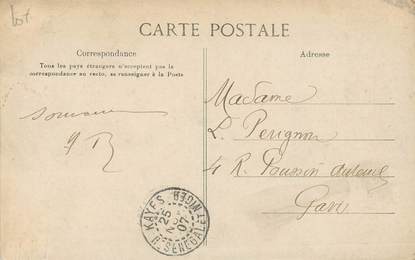 Lot
CARTE POSTALE
Correspondance
Tous les pays étrangers n'acceptent pas la
correspondance au recto, se renseigner à la Poste
Adresse
Madame
L. Perignon
4 R. Poussin Auteuil
Paris
KAYES
25
07
HT SENEGAL ET NIGER